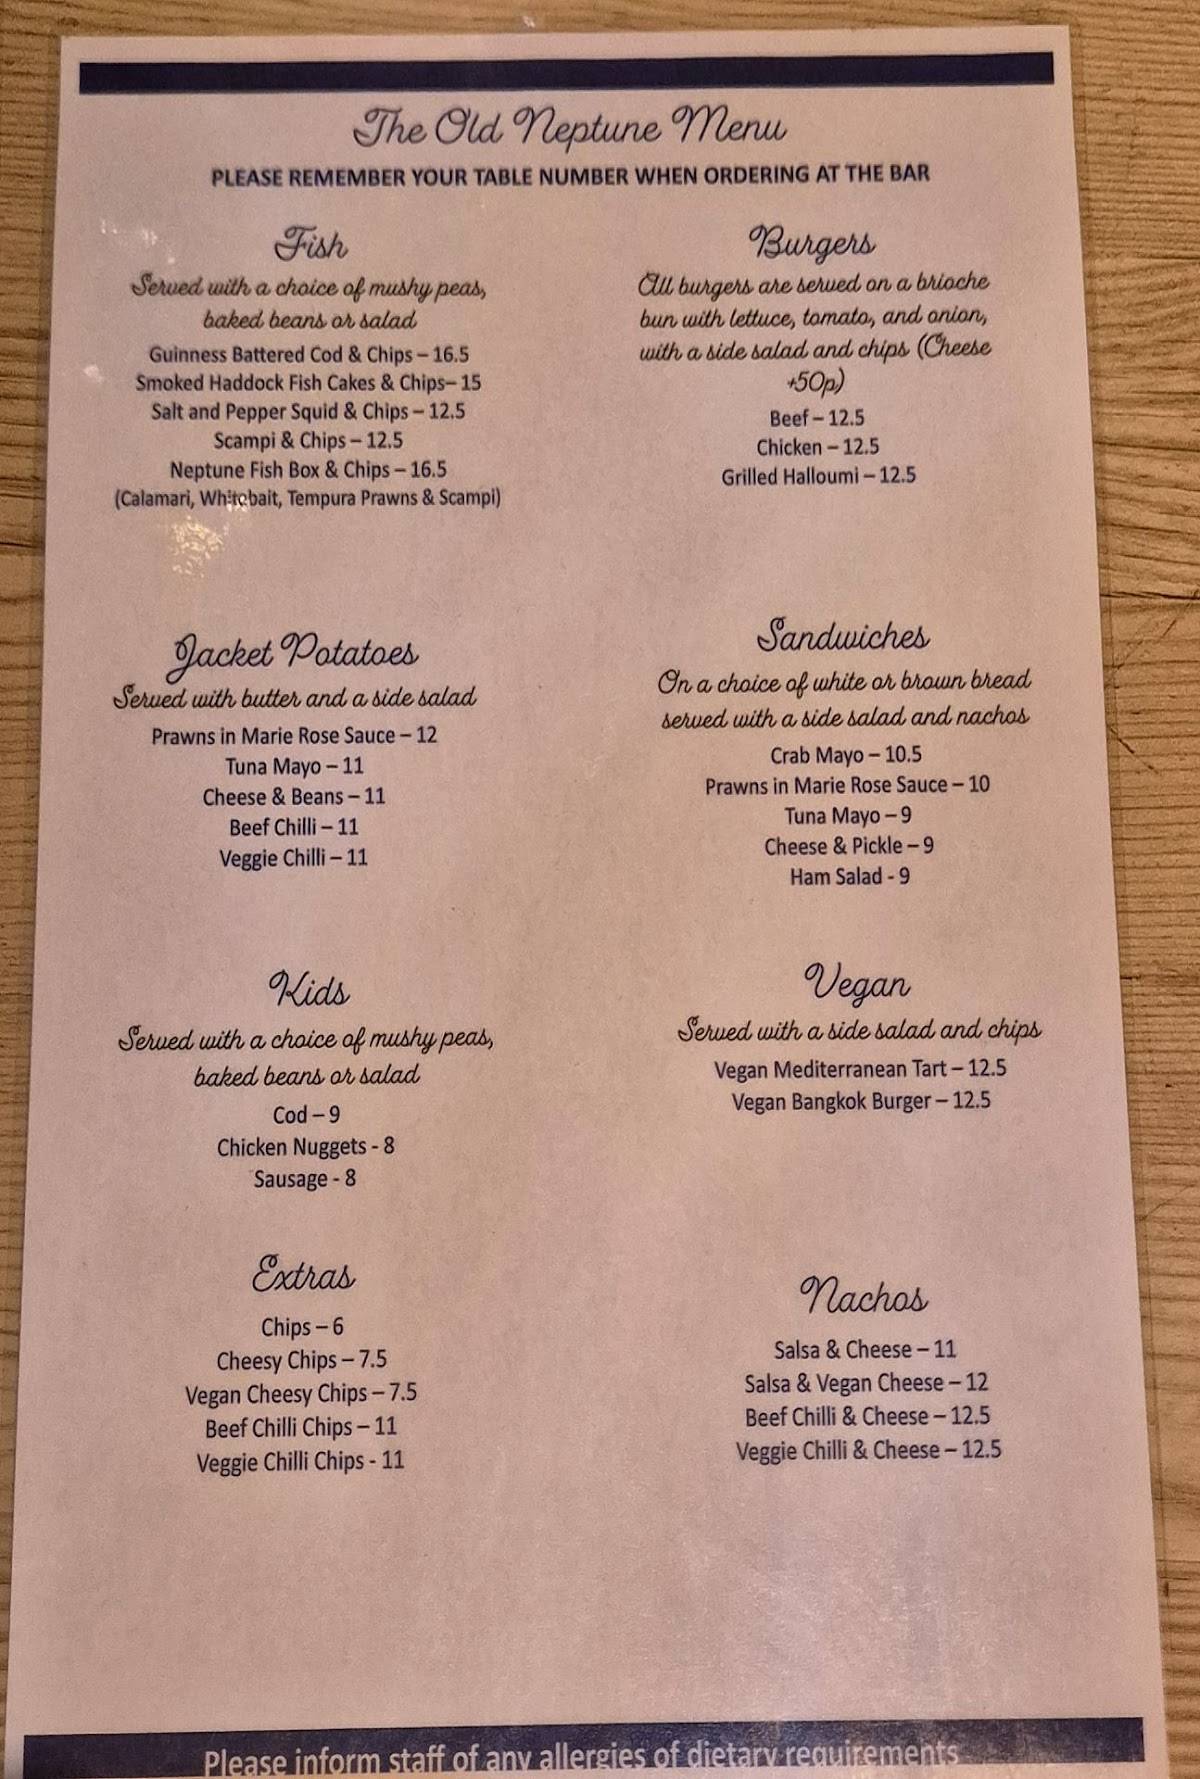 The Old Neptune Menu
PLEASE REMEMBER YOUR TABLE NUMBER WHEN ORDERING AT THE BAR
Fish
Served with a choice of mushy peas,
baked beans or salad
Guinness Battered Cod & Chips – 16.5
Smoked Haddock Fish Cakes & Chips– 15
Salt and Pepper Squid & Chips – 12.5
Scampi & Chips – 12.5
Neptune Fish Box & Chips – 16.5
(Calamari, Whitebait, Tempura Prawns & Scampi)
Burgers
All burgers are served on a brioche
bun with lettuce, tomato, and onion,
with a side salad and chips (Cheese
+50p)
Beef – 12.5
Chicken – 12.5
Grilled Halloumi – 12.5
Jacket Potatoes
Served with butter and a side salad
Prawns in Marie Rose Sauce – 12
Tuna Mayo – 11
Cheese & Beans – 11
Beef Chilli – 11
Veggie Chilli – 11
Sandwiches
On a choice of white or brown bread
served with a side salad and nachos
Crab Mayo – 10.5
Prawns in Marie Rose Sauce – 10
Tuna Mayo – 9
Cheese & Pickle – 9
Ham Salad - 9
Kids
Served with a choice of mushy peas,
baked beans or salad
Cod – 9
Chicken Nuggets - 8
Sausage - 8
Vegan
Served with a side salad and chips
Vegan Mediterranean Tart – 12.5
Vegan Bangkok Burger – 12.5
Extras
Chips – 6
Cheesy Chips – 7.5
Vegan Cheesy Chips – 7.5
Beef Chilli Chips – 11
Veggie Chilli Chips - 11
Nachos
Salsa & Cheese – 11
Salsa & Vegan Cheese – 12
Beef Chilli & Cheese – 12.5
Veggie Chilli & Cheese – 12.5
Please inform staff of any allergies of dietary requirements